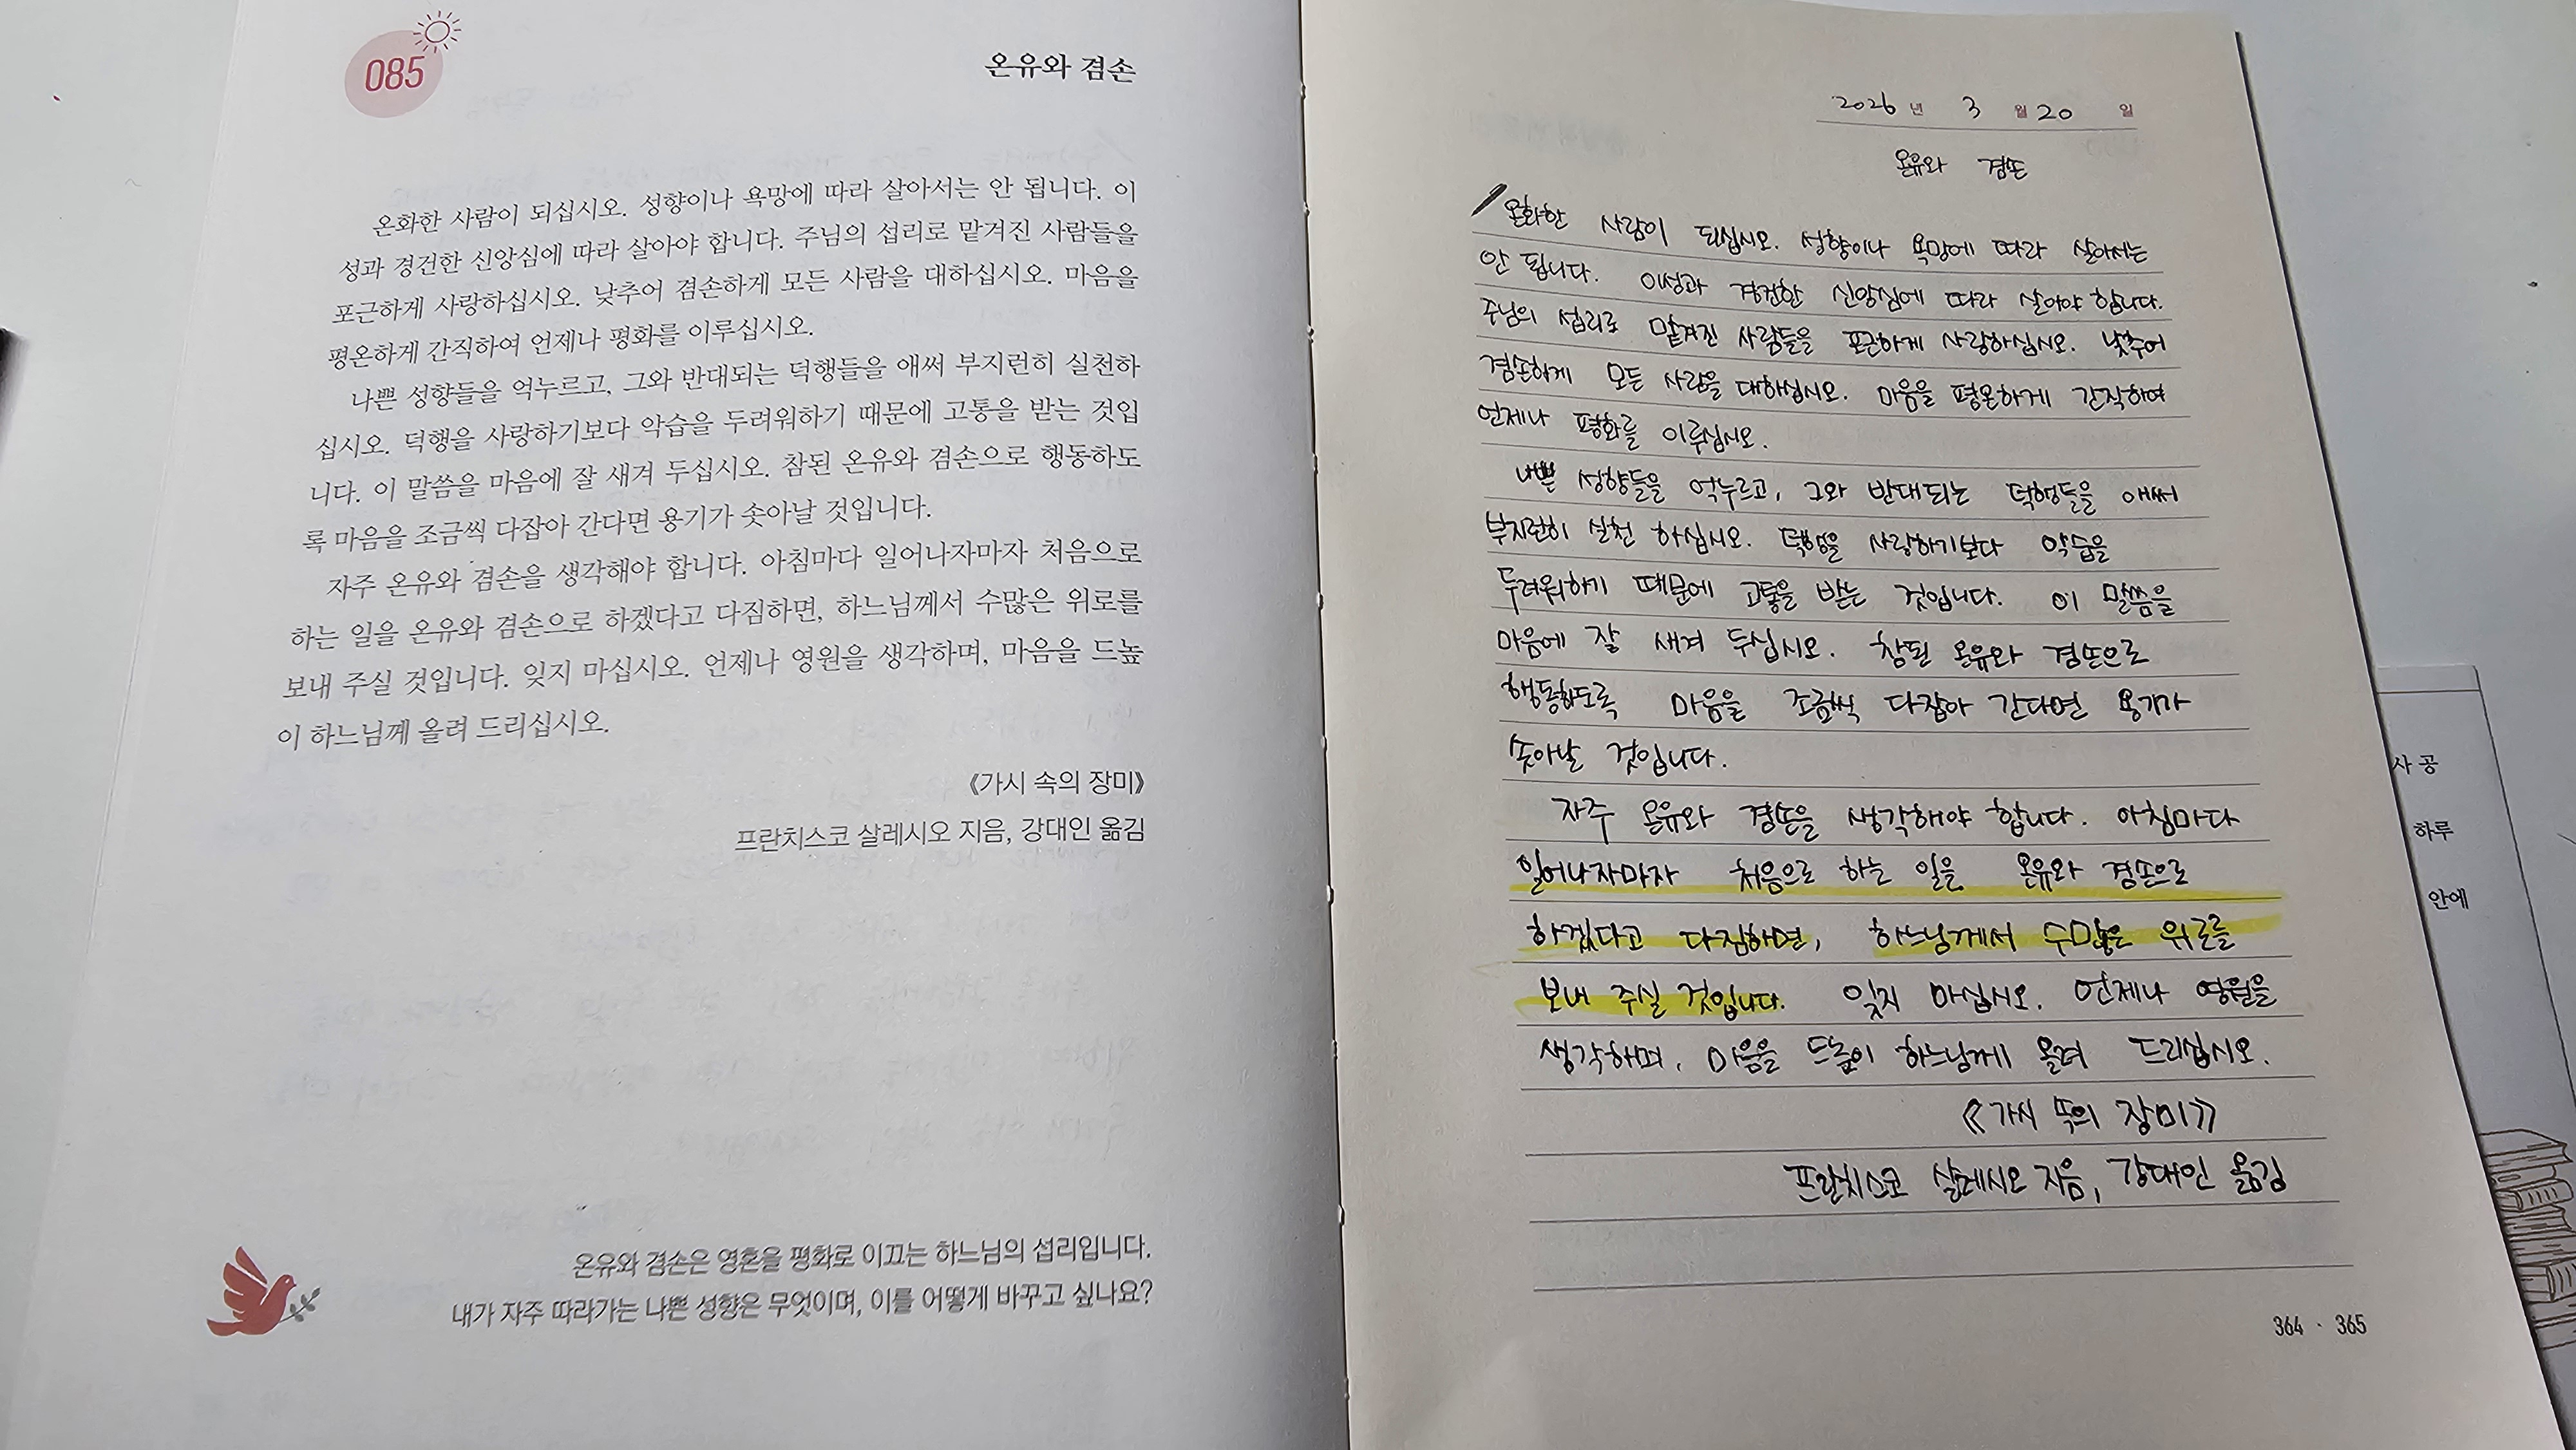 085
온유와 겸손
온화한 사람이 되십시오. 성향이나 욕망에 따라 살아서는 안 됩니다. 이
성과 경건한 신앙심에 따라 살아야 합니다. 주님의 섭리로 맡겨진 사람들을
포근하게 사랑하십시오. 낮추어 겸손하게 모든 사람을 대하십시오. 마음을
평온하게 간직하여 언제나 평화를 이루십시오.
나쁜 성향들을 억누르고, 그와 반대되는 덕행들을 애써 부지런히 실천하
십시오. 덕행을 사랑하기보다 악습을 두려워하기 때문에 고통을 받는 것입
니다. 이 말씀을 마음에 잘 새겨 두십시오. 참된 온유와 겸손으로 행동하도
록 마음을 조금씩 다잡아 간다면 용기가 솟아날 것입니다.
자주 온유와 겸손을 생각해야 합니다. 아침마다 일어나자마자 처음으로
하는 일을 온유와 겸손으로 하겠다고 다짐하면, 하느님께서 수많은 위로를
보내 주실 것입니다. 잊지 마십시오. 언제나 영원을 생각하며, 마음을 드높
이 하느님께 올려 드리십시오.
《가시 속의 장미》
프란치스코 살레시오 지음, 강대인 옮김
온유와 겸손은 영혼을 평화로 이끄는 하느님의 섭리입니다.
내가 자주 따라가는 나쁜 성향은 무엇이며, 이를 어떻게 바꾸고 싶나요?
2026년 3월 20일
온유와 겸손
온화한 사람이 되십시오. 성향이나 욕망에 따라 살아서는
안 됩니다. 이성과 경건한 신앙심에 따라 살아야 합니다.
주님의 섭리로 맡겨진 사람들을 포근하게 사랑하십시오. 낮추어
겸손하게 모든 사람을 대하십시오. 마음을 평온하게 간직하여
언제나 평화를 이루십시오.
나쁜 성향들을 억누르고, 그와 반대되는 덕행들을 애써
부지런히 실천 하십시오. 덕행을 사랑하기보다 악습을
두려워하기 때문에 고통을 받는 것입니다. 이 말씀을
마음에 잘 새겨 두십시오. 참된 온유와 겸손으로
행동하도록 마음을 조금씩 다잡아 간다면 용기가
솟아날 것입니다.
자주 온유와 겸손을 생각해야 합니다. 아침마다
일어나자마자 처음으로 하는 일을 온유와 겸손으로
하겠다고 다짐하면, 하느님께서 수많은 위로를
보내 주실 것입니다. 잊지 마십시오. 언제나 영원을
생각하며, 마음을 드높이 하느님께 올려 드리십시오.
《가시 속의 장미》
프란치스코 살레시오 지음, 강대인 옮김
364 · 365
사 공
하루
안에